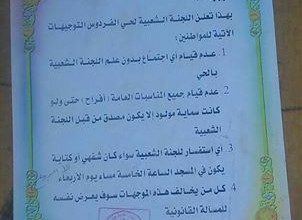 بهذا تعلن اللجنة الشعبية لحي الفردوس التوجيهات
الآتية للمواطنين:
1. عدم قيام أي اجتماع بدون علم اللجنة الشعبية
بالحي
2. عدم قيام جميع المناسبات العامة (أفراح) حتى ولو
كانت سماية مولود إلا يكون مصدق من قبل اللجنة
الشعبية
3. أي استفسار للجنة الشعبية سواء كان شفهي أو كتابة
يكون في المسجد الساعة الخامسة مساء يوم الأربعاء
4. كل من يخالف هذه الموجهات سوف يعرض نفسه
للمسألة القانونية